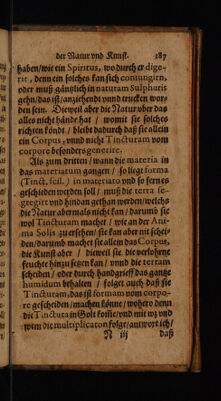 der Natur vnd Kunst. 187
haben/wie ein Spiritus, wodurch er dige-
rit, denn ein solches kan sich contungirn,
oder muß gäntzlich in naturam Sulphuris
gehn/das ist/anziehendt vnnd trucken wor-
den sein. Dieweil aber die Natur aber das
alles nicht händt hat / womit sie solches
richten köndt / bleibt dadurch daß sie allein
ein Corpus, vnnd nicht Tincturam vom
corpore besonders generire.
Als zum dritten / wann die materia in
das materiatum gangen / so ligt forma
(Tinct. scil.) in materiato vnd so fernes
geschieden werden soll / muß die terra se-
gregirt vnd hindan gethan werden/welchs
die Natur abermals nicht kan / darumb sie
wol Tincturam machet / wie an der Au-
ma Solis zu ersehen/ sie kan aber nit schei-
den/darumb machet sie allein das Corpus,
die Kunst aber / dieweil sie die verlohrne
feuchte hinzu setzen kan / vnnd die terram
scheiden / oder durch handgrieff das gantze
humidum behalten / folget auch daß sie
Tincturam, das ist formam vom corpo-
re gescheiden/machen könne/ wohero denn
die Tinctura in Golt komme/vnd mit wz vnd
wem die multiplicaton folgt/antwort ich/
N iij daß